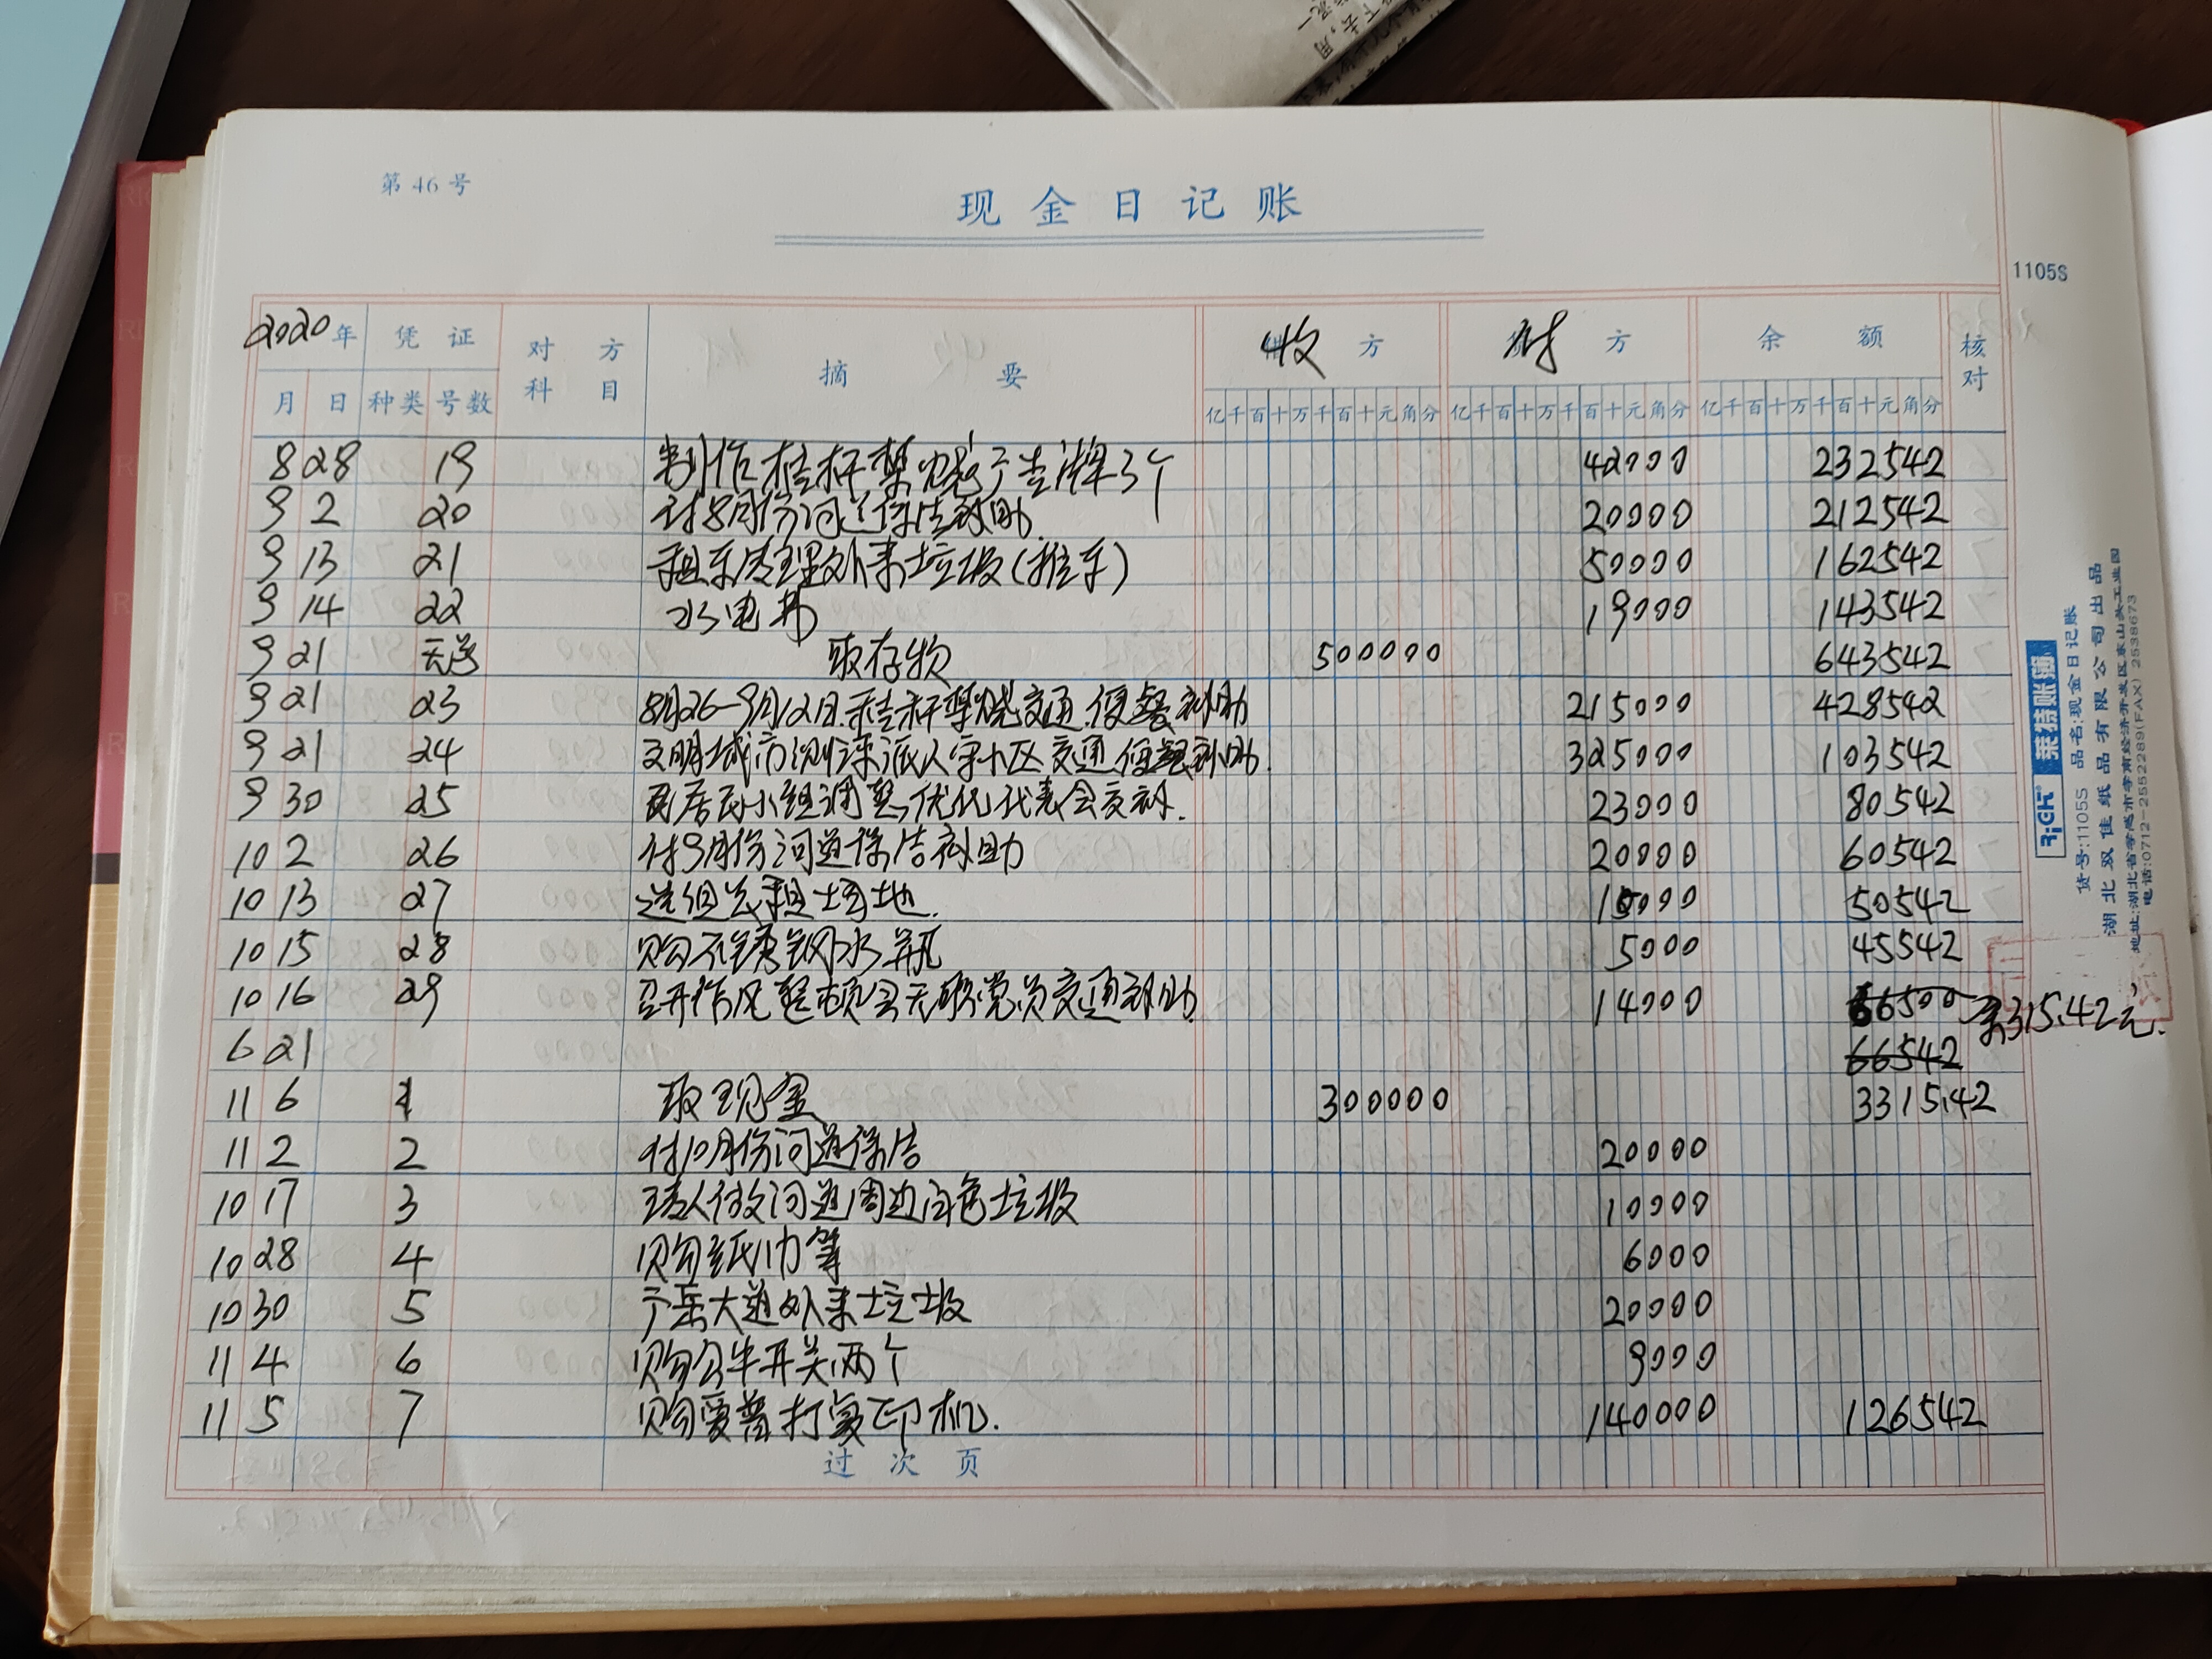 第 46 号
现金日记账
1105S
2020年 凭证 对方科目 摘要 收方 付方 余额 核对
月 日 种类 号数 亿千百十万千百十元角分 亿千百十万千百十元角分 亿千百十万千百十元角分
8 28 19 制作秸秆禁烧广告牌3个 42000 232542
9 2 20 付8月份河道保洁补助. 20000 212542
9 13 21 租车清理外来垃圾(推车) 50000 162542
9 14 22 水电费 19000 143542
9 21 无号 取存款 500000 643542
9 21 23 8月26-9月12日.秸秆禁烧交通.便餐补助 215000 428542
9 21 24 文明城市测评派人守小区交通便餐补助. 325000 103542
9 30 25 居民小组调整,优化代表会交补. 23000 80542
10 2 26 付9月份河道保洁补助 20000 60542
10 13 27 组租场地. 10000 50542
10 15 28 购不锈钢水瓶 5000 45542
10 16 29 召开作风整顿会无职党员交通补助. 14000 66500 余315.42元.
6 21 66542
11 6 1 取现金 300000 3315.42
11 2 2 付10月份河道保洁 20000
10 17 3 请人行政河道周边白色垃圾 10000
10 28 4 购纸巾等 6000
10 30 5 大道外来垃圾 20000
11 4 6 购公牛开关两个 9000
11 5 7 购爱普打复印机. 140000 126542
过次页
货号:1105S 品名:现金日记账
湖北双佳纸品有限公司出品
地址:湖北省孝感市孝南经济开发区东山头工业园
电话:0712-2552289(FAX) 2538673